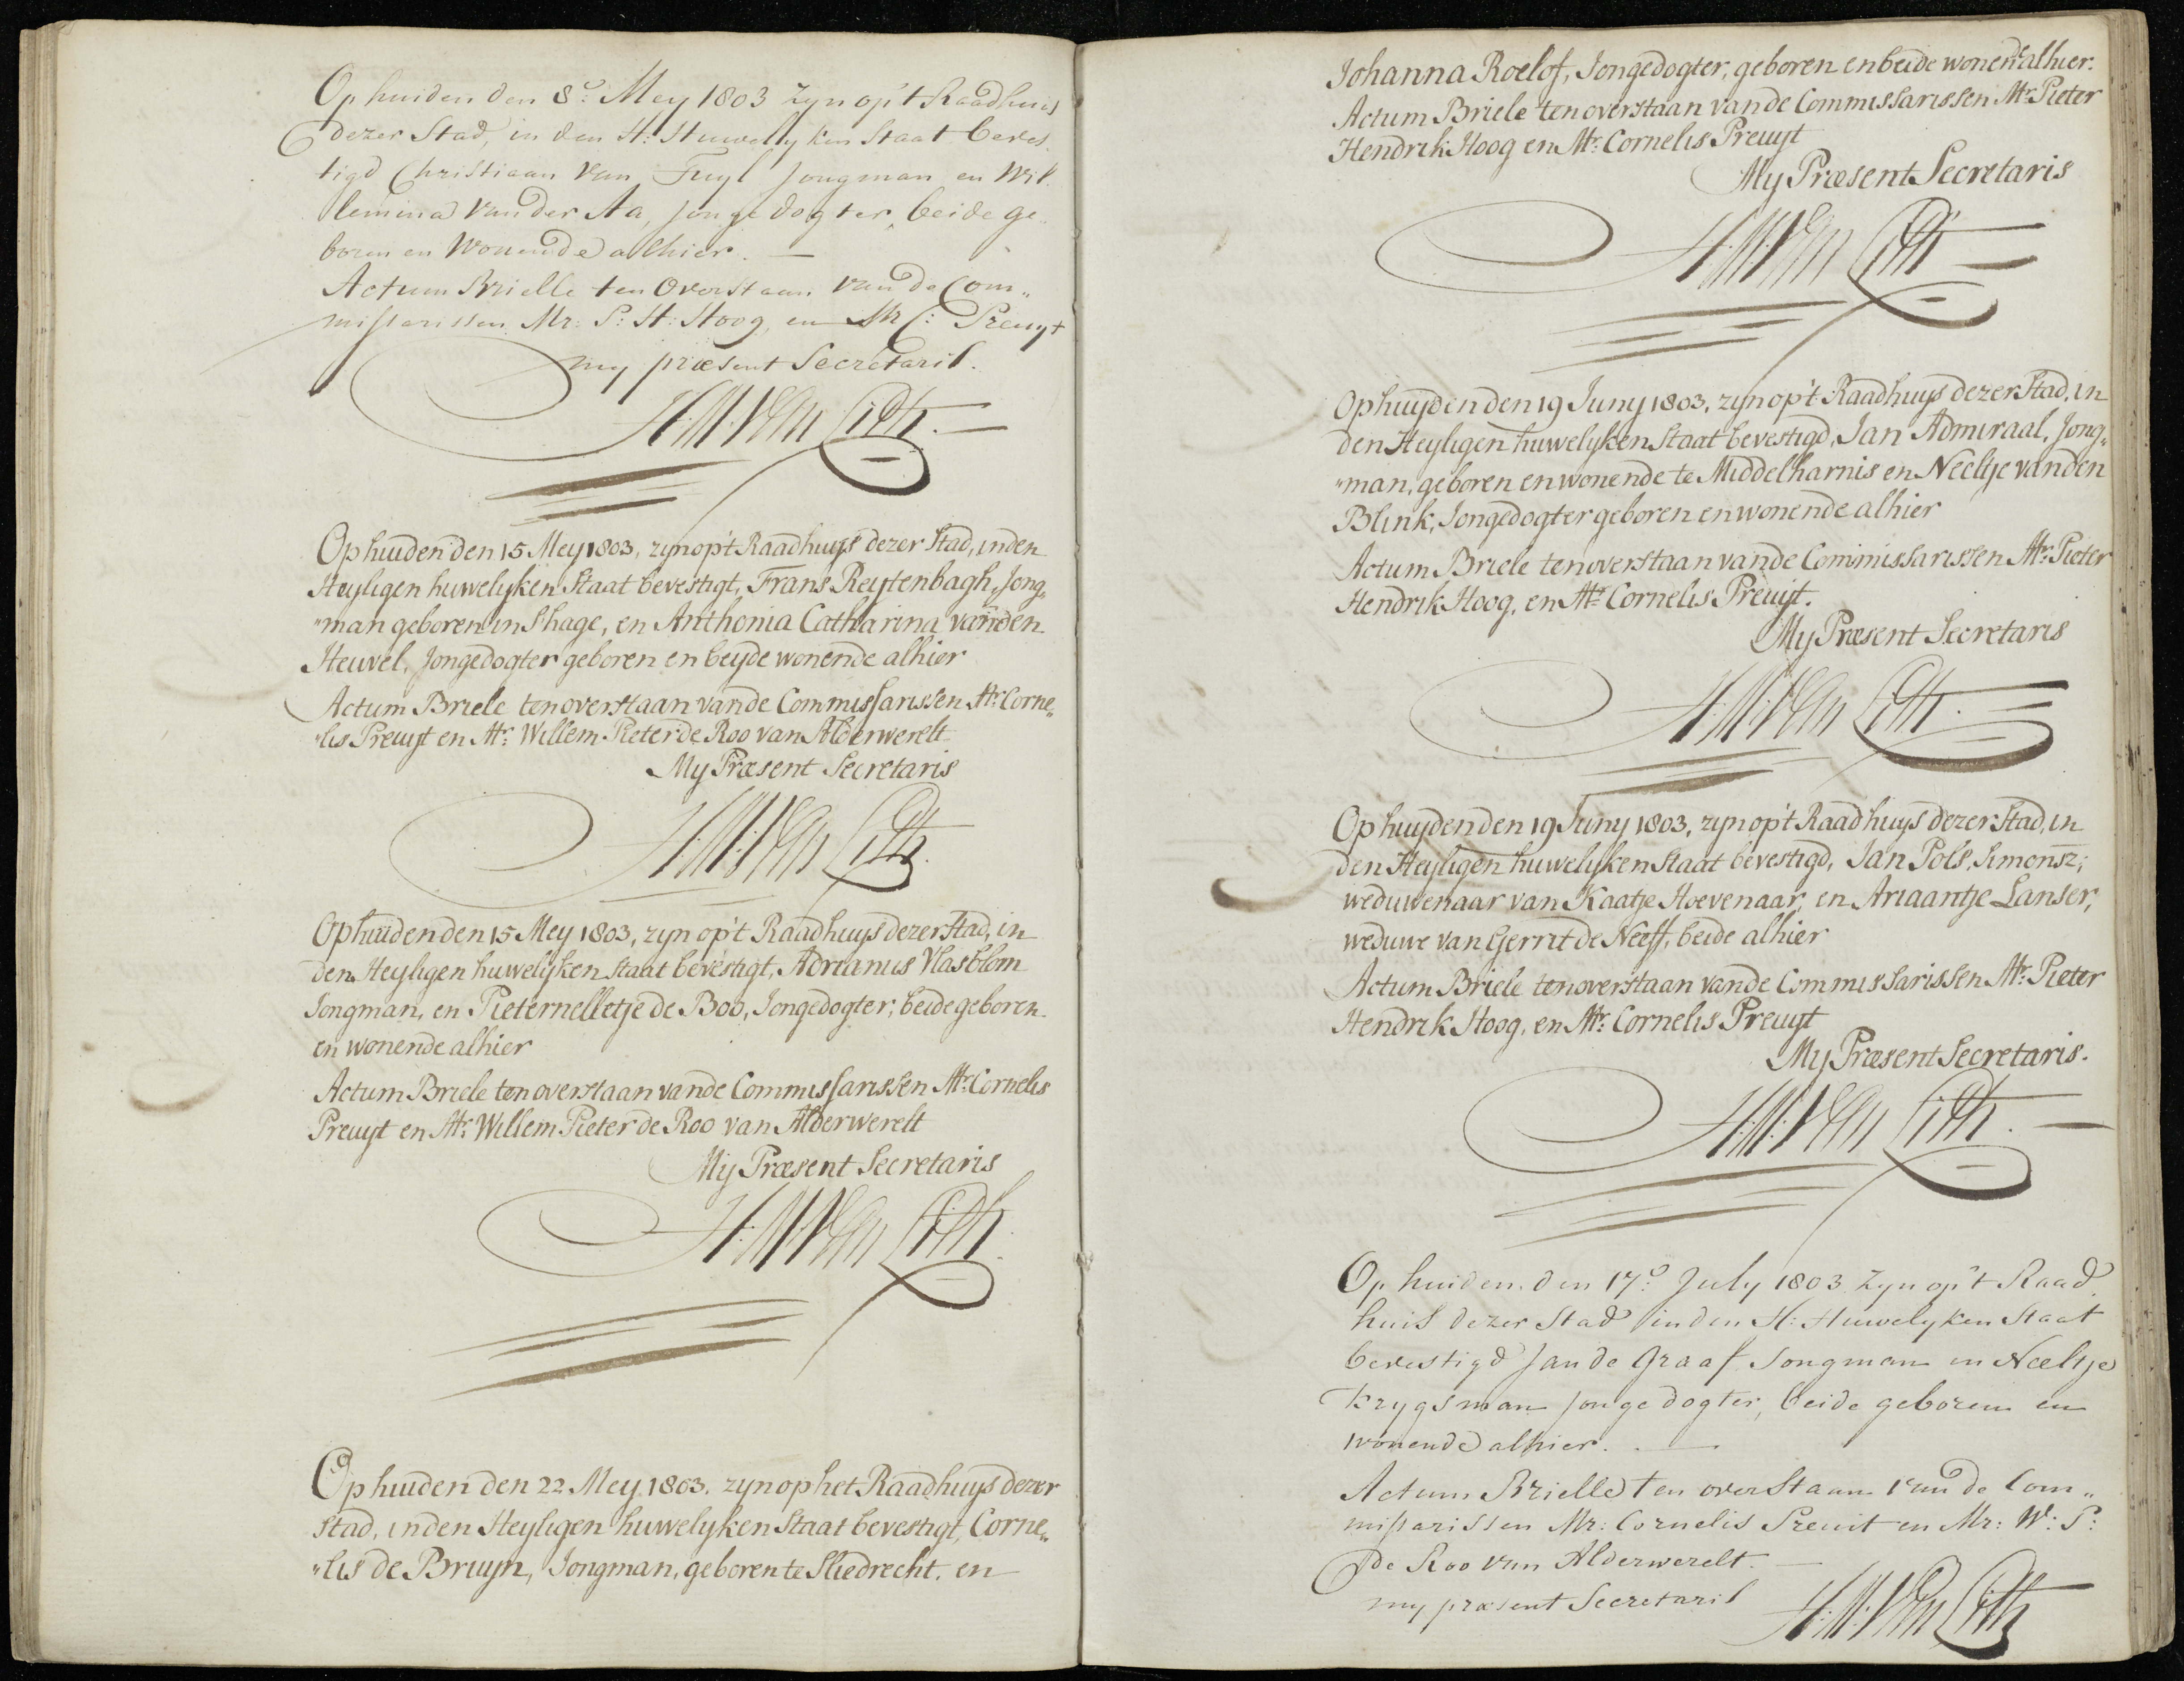 Op huiden den 8e: Mey 1803 Zyn op 't Raadhuis
dezer Stad, in den H: Huwelyken Staat beves
tigd Christiaan van Tuyl Jongman en Wil
lemina van der Aa, Jonge dogter, beide ge
boren en Wonende alhier. —
Actum Brielle ten Overstaan van de Com„
missarissen Mr: P: H: Hoog, en Mr C: Preuyt
my præsent Secretaris.
H: M: van Lith.
Op huiden den 15 Mey 1803, zyn op't Raadhuys dezer Stad, in den
Heyligen huwelyken Staat bevestigt, Frans Reytenbagh, Jong„
„man geboren in S'hage, en Anthonia Catharina van den
Heuvel, Jongedogter geboren en beyde wonende alhier
Actum Briele ten overstaan van de Commissarissen Mr: Corne„
„lis Preuyt en Mr: Willem Pieter de Roo van Alderwerelt
My Præsent Secretaris
H: M: van Lith.
Op huiden den 15 Mey 1803, zyn op't Raadhuys dezer Stad, in
den Heyligen huwelyken Staat bevestigt, Adrianus Vlasblom
Jongman, en Pieternelletje de Boo, Jongedogter; beide geboren
en wonende alhier
Actum Briele ten overstaan van de Commissarissen Mr: Cornelis
Preuyt en Mr: Willem Pieter de Roo van Alderwerelt
My Præsent Secretaris
H: M: van Lith.
Op huiden den 22 Mey 1803. zyn op het Raadhuys dezer
Stad, in den Heyligen huwelyken Staat bevestigt, Corne„
„lis de Bruyn, Jongman, geboren te Sliedrecht, en
Johanna Roelof, Jongedogter, geboren en beide wonende alhier.
Actum Briele ten overstaan van de Commissarissen Mr: Pieter
Hendrik Hoog en Mr: Cornelis Preuyt
My Præsent Secretaris
H: M: van Lith
Op huyden den 19 Juny 1803, zyn op't Raadhuys dezer Stad, in
den Heyligen huwelyken Staat bevestigd, Jan Admiraal, Jong„
„man, geboren en wonende te Middelharnis en Neeltje van den
Blink, Jongedogter geboren en wonende alhier
Actum Briele ten overstaan van de Commissarissen Mr: Pieter
Hendrik Hoog, en Mr: Cornelis Preuyt.
My Præsent Secretaris
H: M: van Lith.
Op huyden den 19 Juny 1803, zyn op't Raadhuys dezer Stad, in
den Heyligen huwelyken Staat bevestigd, Jan Pols, Simonsz;
weduwenaar van Kaatje Hoevenaar, en Ariaantje Lanser,
weduwe van Gerrit de Neeff, beide alhier
Actum Briele ten overstaan van de Commissarissen Mr: Pieter
Hendrik Hoog, en Mr: Cornelis Preuyt
My Præsent Secretaris.
H: M: van Lith.
Op huiden den 17e: July 1803 Zyn op 't Raad
huis dezer Stad in den H: Huwelyken Staat
bevestigd Jan de Graaf Jongman en Neeltje
Krygsman Jonge dogter, beide geboren en
wonende alhier. —
Actum Brielle ten overstaan van de Com„
missarissen Mr: Cornelis Preuit en Mr: W: P:
de Roo van Alderwerelt. —
my præsent Secretaris
H: M: van Lith